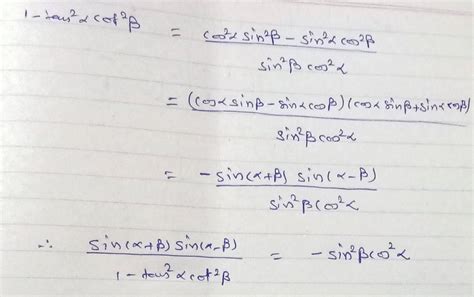 1 - tan²α cot²β = cos²α sin²β - sin²α cos²β / sin²β cos²α
= (cosα sinβ - sinα cosβ) (cosα sinβ + sinα cosβ) / sin²β cos²α
= - sin(α+β) sin(α-β) / sin²β cos²α
∴ sin(α+β) sin(α-β) / 1 - tan²α cot²β = - sin²β cos²α